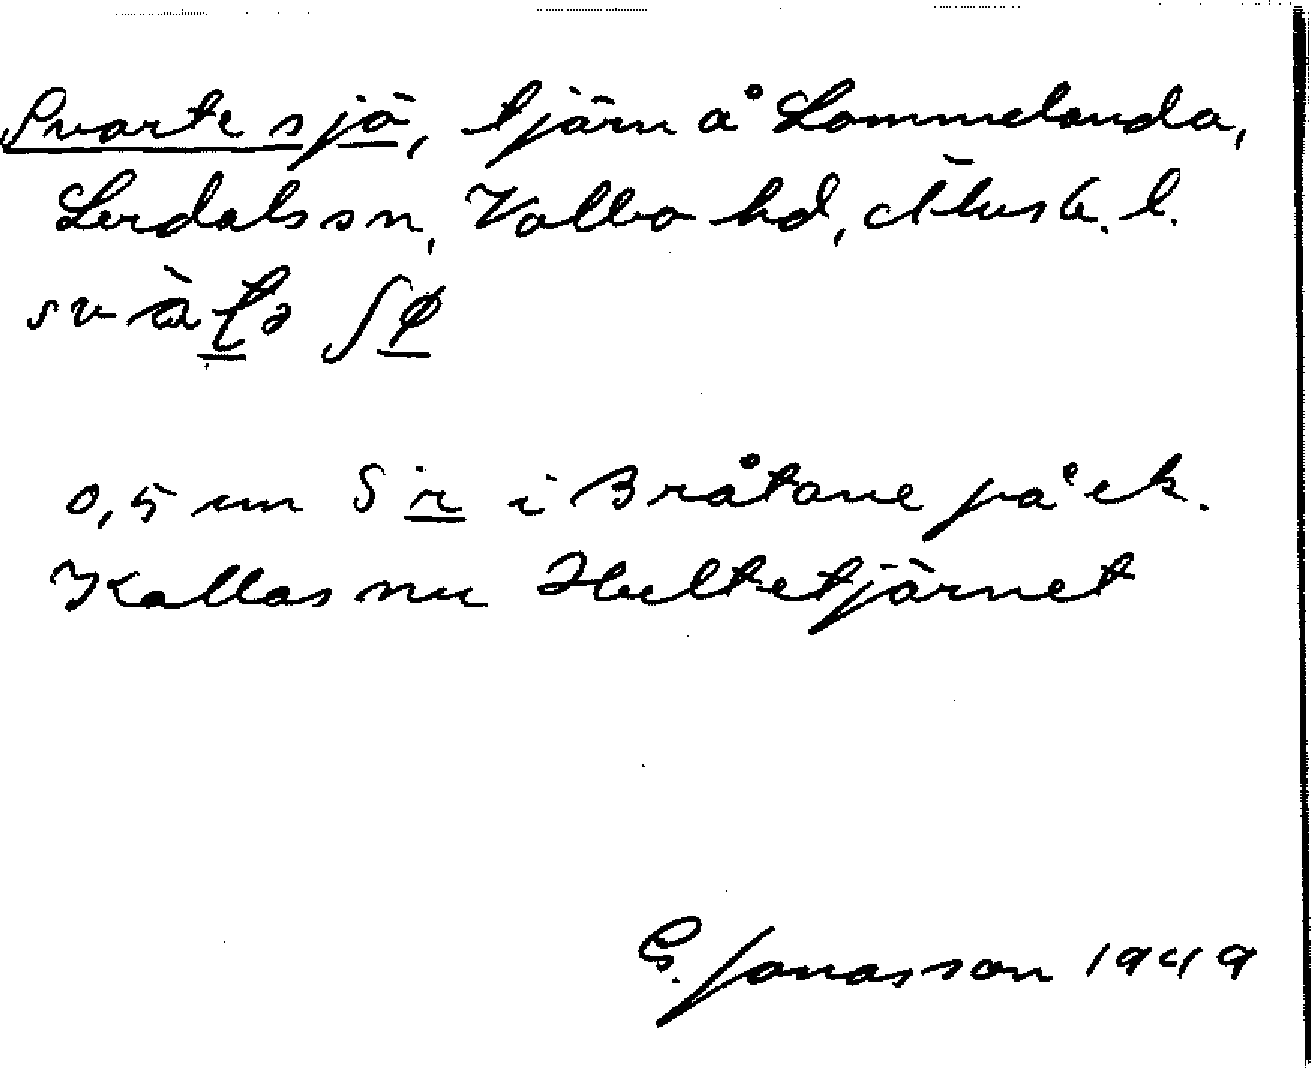 Svarte sjö, tjärn å Lommelanda,
Lerdals sn, Valbo hd, Älvsb. l.
0,5 cm S r i Bråtane på ek.
Kallas nu Hultetjärnet
G. Jonasson 1949